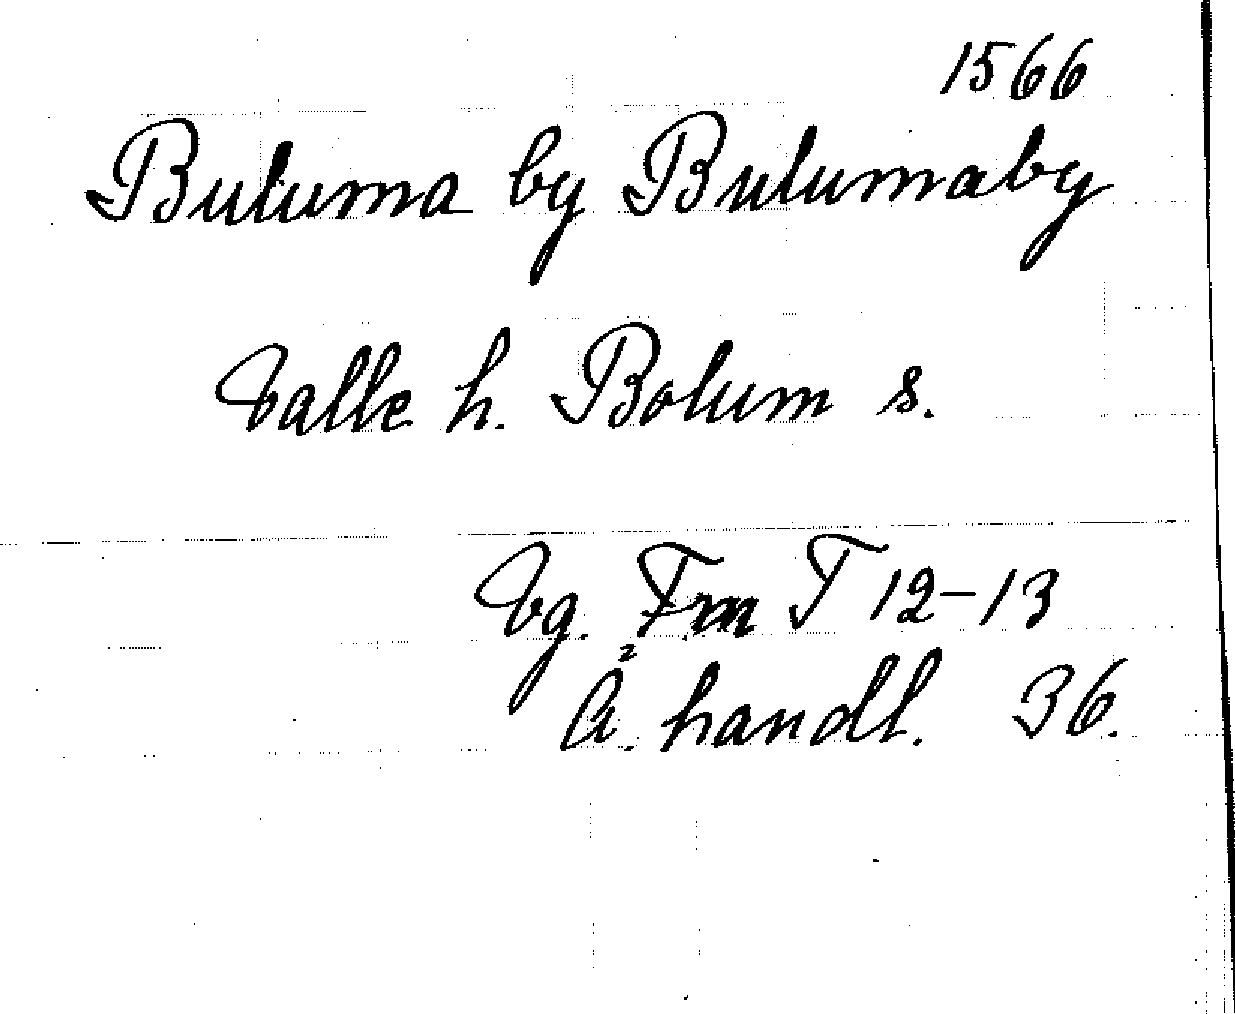 1566
Buluma by Bulumaby
Valle h. Bolum s.
Vg. Fm T 12-13
a. handl. 36.